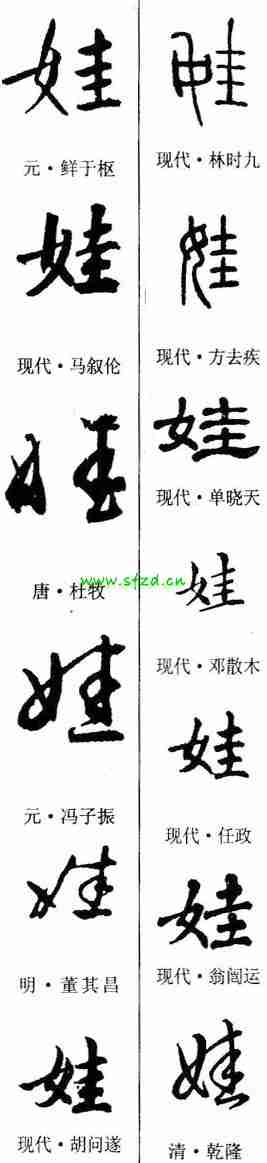 娃
元·鲜于枢
娃
现代·马叙伦
娃
唐·杜牧
娃
元·冯子振
娃
明·董其昌
娃
现代·胡问遂
娃
现代·林时九
娃
现代·方去疾
娃
现代·单晓天
www.sfzd.cn
娃
现代·邓散木
娃
现代·任政
娃
现代·翁闿运
娃
清·乾隆